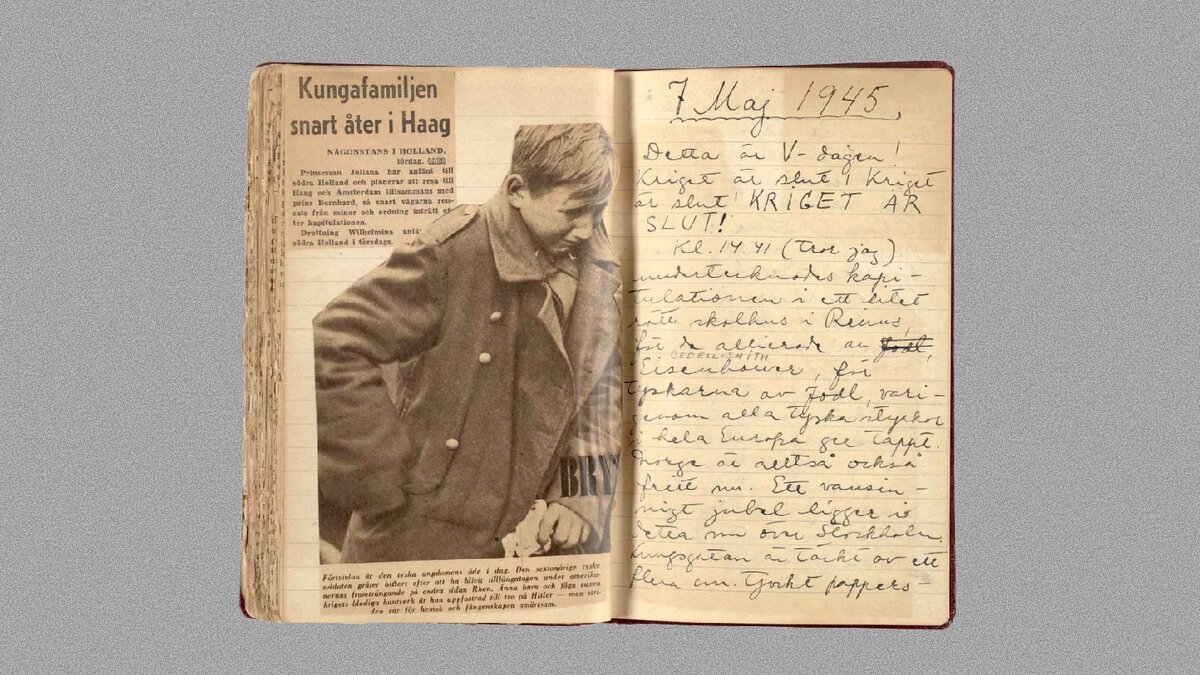 Kungafamiljen
snart åter i Haag
NÅGONSTANS I HOLLAND,
lördag. (AB)
Prinsessan Juliana har anlänt till
södra Holland och planerar att resa till
Haag och Amsterdam tillsammans med
prins Bernhard, så snart vägarna ren-
sats från minor och ordning inträtt ef-
ter kapitulationen.
Drottning Wilhelmina anlä
södra Holland i fredags.
BRY
Förtvivlan är den tyska ungdomens öde i dag. Den sextonårige tyske
soldaten gråter bittert efter att ha blivit tillfångatagen under amerika-
nernas framträngande på andra sidan Rhen. Ännu barn och föga vuxen
krigets blodiga hantverk är han uppfostrad till tro på Hitler — men stri-
den var för hemsk och fångenskapen smärtsam.
7 Maj 1945.
Detta är V-dagen!
Kriget är slut! Kriget
är slut! KRIGET ÄR
SLUT!
Kl. 14.41 (tror jag)
undertecknades kapi-
tulationen i ett litet
rött skolhus i Reims,
för de allierade av Jodl,
BEDELL-SMITH
Eisenhower, för
tyskarna av Jodl, vari-
genom alla tyska styrkor
i hela Europa ge tappt.
Norge är alltså också
fritt nu. Ett vansin-
nigt jubel ligger i
detta nu över Stockholm.
Kungsgatan är täckt av ett
flera cm. tjockt pappers-